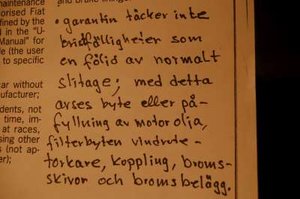 maintenance
orised Fiat
fined by the
d in the "U-
Manual" for
le (the user
to specific
car without
ufacturer;
dents, not
time, im-
at races,
es (not ap-
er);
• garantin täcker inte
bristfälligheter som
en följd av normalt
slitage; med detta
avses byte eller på-
fyllning av motorolja,
filterbyten vindrute-
torkare, koppling, broms-
skivor och bromsbelägg.